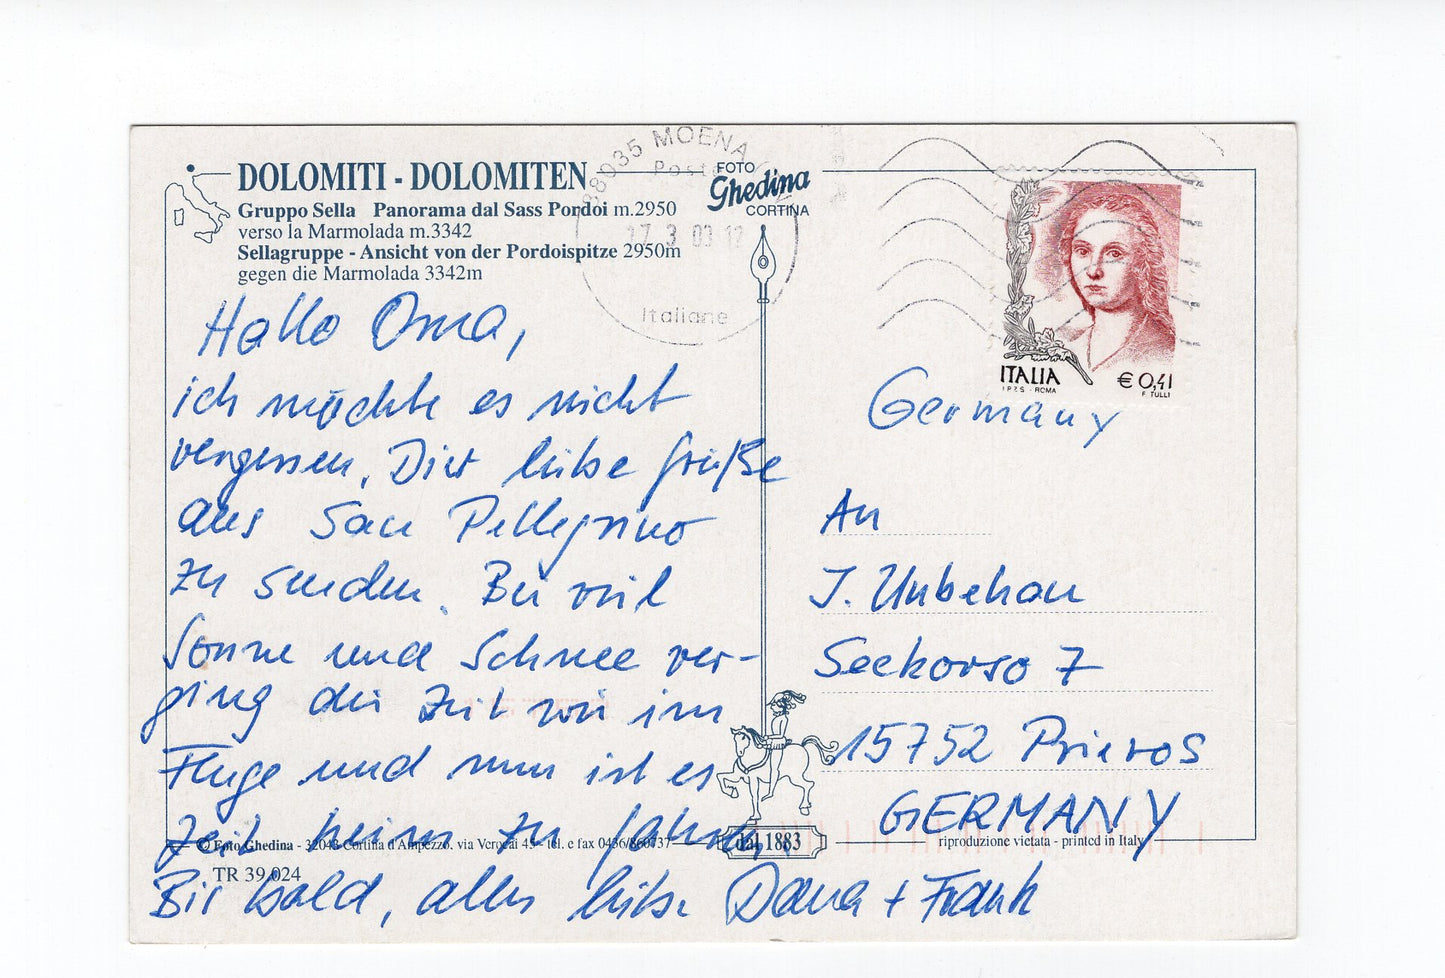 DOLOMITI - DOLOMITEN
Gruppo Sella Panorama dal Sass Pordoi m.2950
verso la Marmolada m.3342
Sellagruppe - Ansicht von der Pordoispitze 2950m
gegen die Marmolada 3342m
FOTO
Ghedina
CORTINA
38035 MOENA
Poste
17 3 03 12
Italiane
ITALIA
I.P.Z.S. - ROMA
€ 0,41
F. TULLI
Hallo Oma,
ich möchte es nicht
vergessen, Dir liebe Grüße
aus San Pellegrino
zu senden. Bei viel
Sonne und Schnee ver-
ging die Zeit wie im
Fluge und nun ist es
Zeit heim zu fahren.
Bis bald, alles liebe Dana + Frank
Germany
An
I. Unbehau
Seekorso 7
15752 Prieros
GERMANY
dal 1883
© Foto Ghedina - 32043 Cortina d'Ampezzo, via Verocai 45 - tel. e fax 0436/860737
riproduzione vietata - printed in Italy
TR 39.024